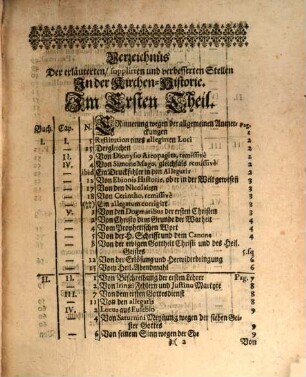 Verzeichnüs
Der erläuterten/ supplirten und verbesserten Stellen
In der Kirchen-Historie.
Im Ersten Theil.
Buch. Cap. N. Erinnerung wegen der allgemeinen Anmer- Pag.
ckungen
I. I. Restitution eines allegirten Loci
Dergleichen
II. Von Dionysio Areopagita, remissivè
IV. Von Simone Mago, gleichfals remissivè
ibid. Ein Druckfehler in den Allegatis
Von Ebionis Historie, ob er in der Welt gewesen
Von den Nicolaiten
Von Cerintho, remissivè
Ein allegatum corrigirt
V. Von den Dogmatibus der ersten Christen
Von Christo dem Grunde der Warheit
Vom Prophetischen Wort
Von der H. Schrifft und dem Canone
Von der ewigen Gottheit Christi und des Heil.
Geistes
Von der Erlösung und Herwiederbringung
Vom Heil. Abendmahl
II. Von Beschreibung der ersten Lehrer Pag. 7
II. Von Irinæi Fehlern und Justino Martyre
III. 7 Von dem ersten Gottesdienst
Von den allegatis
IV. 2 Locus aus Eusebio 9
Von Saturnini Meynung wegen der sieben Gei-
ster Gottes 9
6 Von seinem Sinn wegen der Ehe 9
)( 2 Von